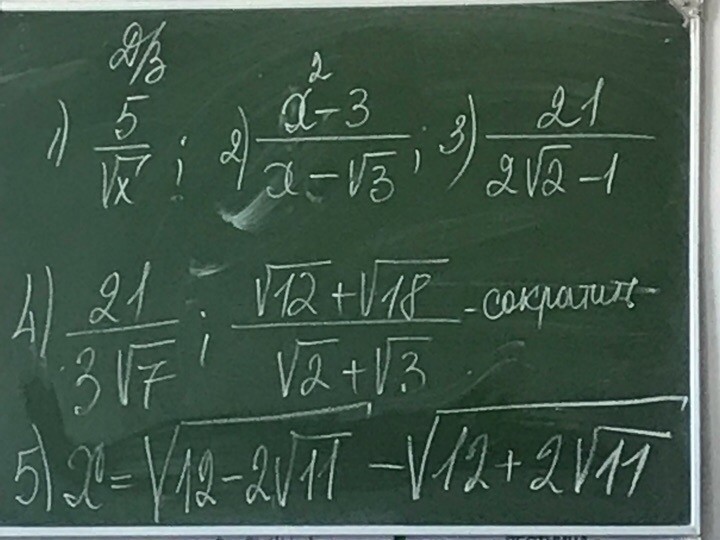 Д/з
1) 5/√x ; 2) (x²-3)/(x-√3) ; 3) 21/(2√2-1)
4) 21/(3√7) ; (√12+√18)/(√2+√3) - сократить
5) x = √(12-2√11) - √(12+2√11)